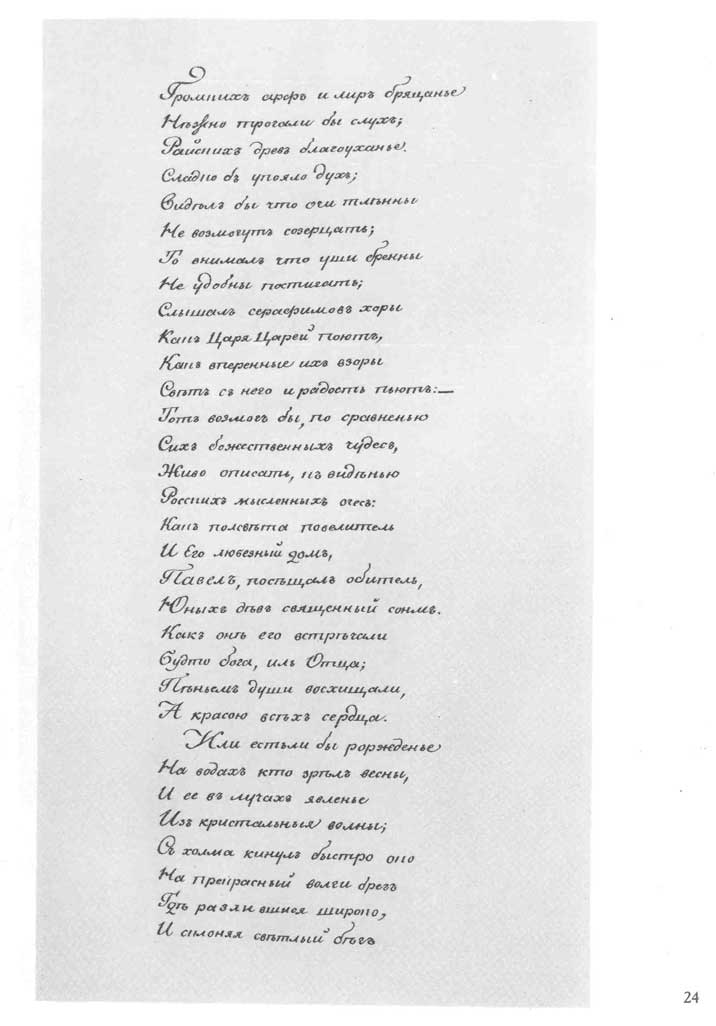 Громкихъ арфъ и лиръ бряцанье
Нѣжно трогали бы слухъ;
Райскихъ древъ благоуханье.
Сладко бъ упояло духъ;
Видѣлъ бы что очи тлѣнны
Не возмогутъ созерцать;
То внималъ что уши бренны
Не удобны постигать;
Слышалъ серафимовъ хоры
Какъ Царя Царей поютъ,
Какъ вперенные ихъ взоры
Свѣтъ съ него и радость пьютъ:—
Тотъ возмогъ бы, по сравненью
Сихъ божественныхъ чудесъ,
Живо описать, къ видѣнью
Росскихъ мысленныхъ очесъ:
Какъ полсвѣта повелитель
И Его любезный домъ,
Павелъ, посѣщалъ обитель,
Юныхъ дѣвъ священный сонмъ.
Какъ онѣ его встрѣчали
Будто бога, иль Отца;
Пѣньемъ души восхищали,
А красою всѣхъ сердца.
Или естьли бы рожденье
На водахъ кто зрѣлъ весны,
И ее въ лучахъ явленье
Изъ кристальныя волны;
Съ холма кинулъ быстро око
На прекрасный волги брегъ
Гдѣ разлившися широко,
И склоняя свѣтлый бѣгъ
24